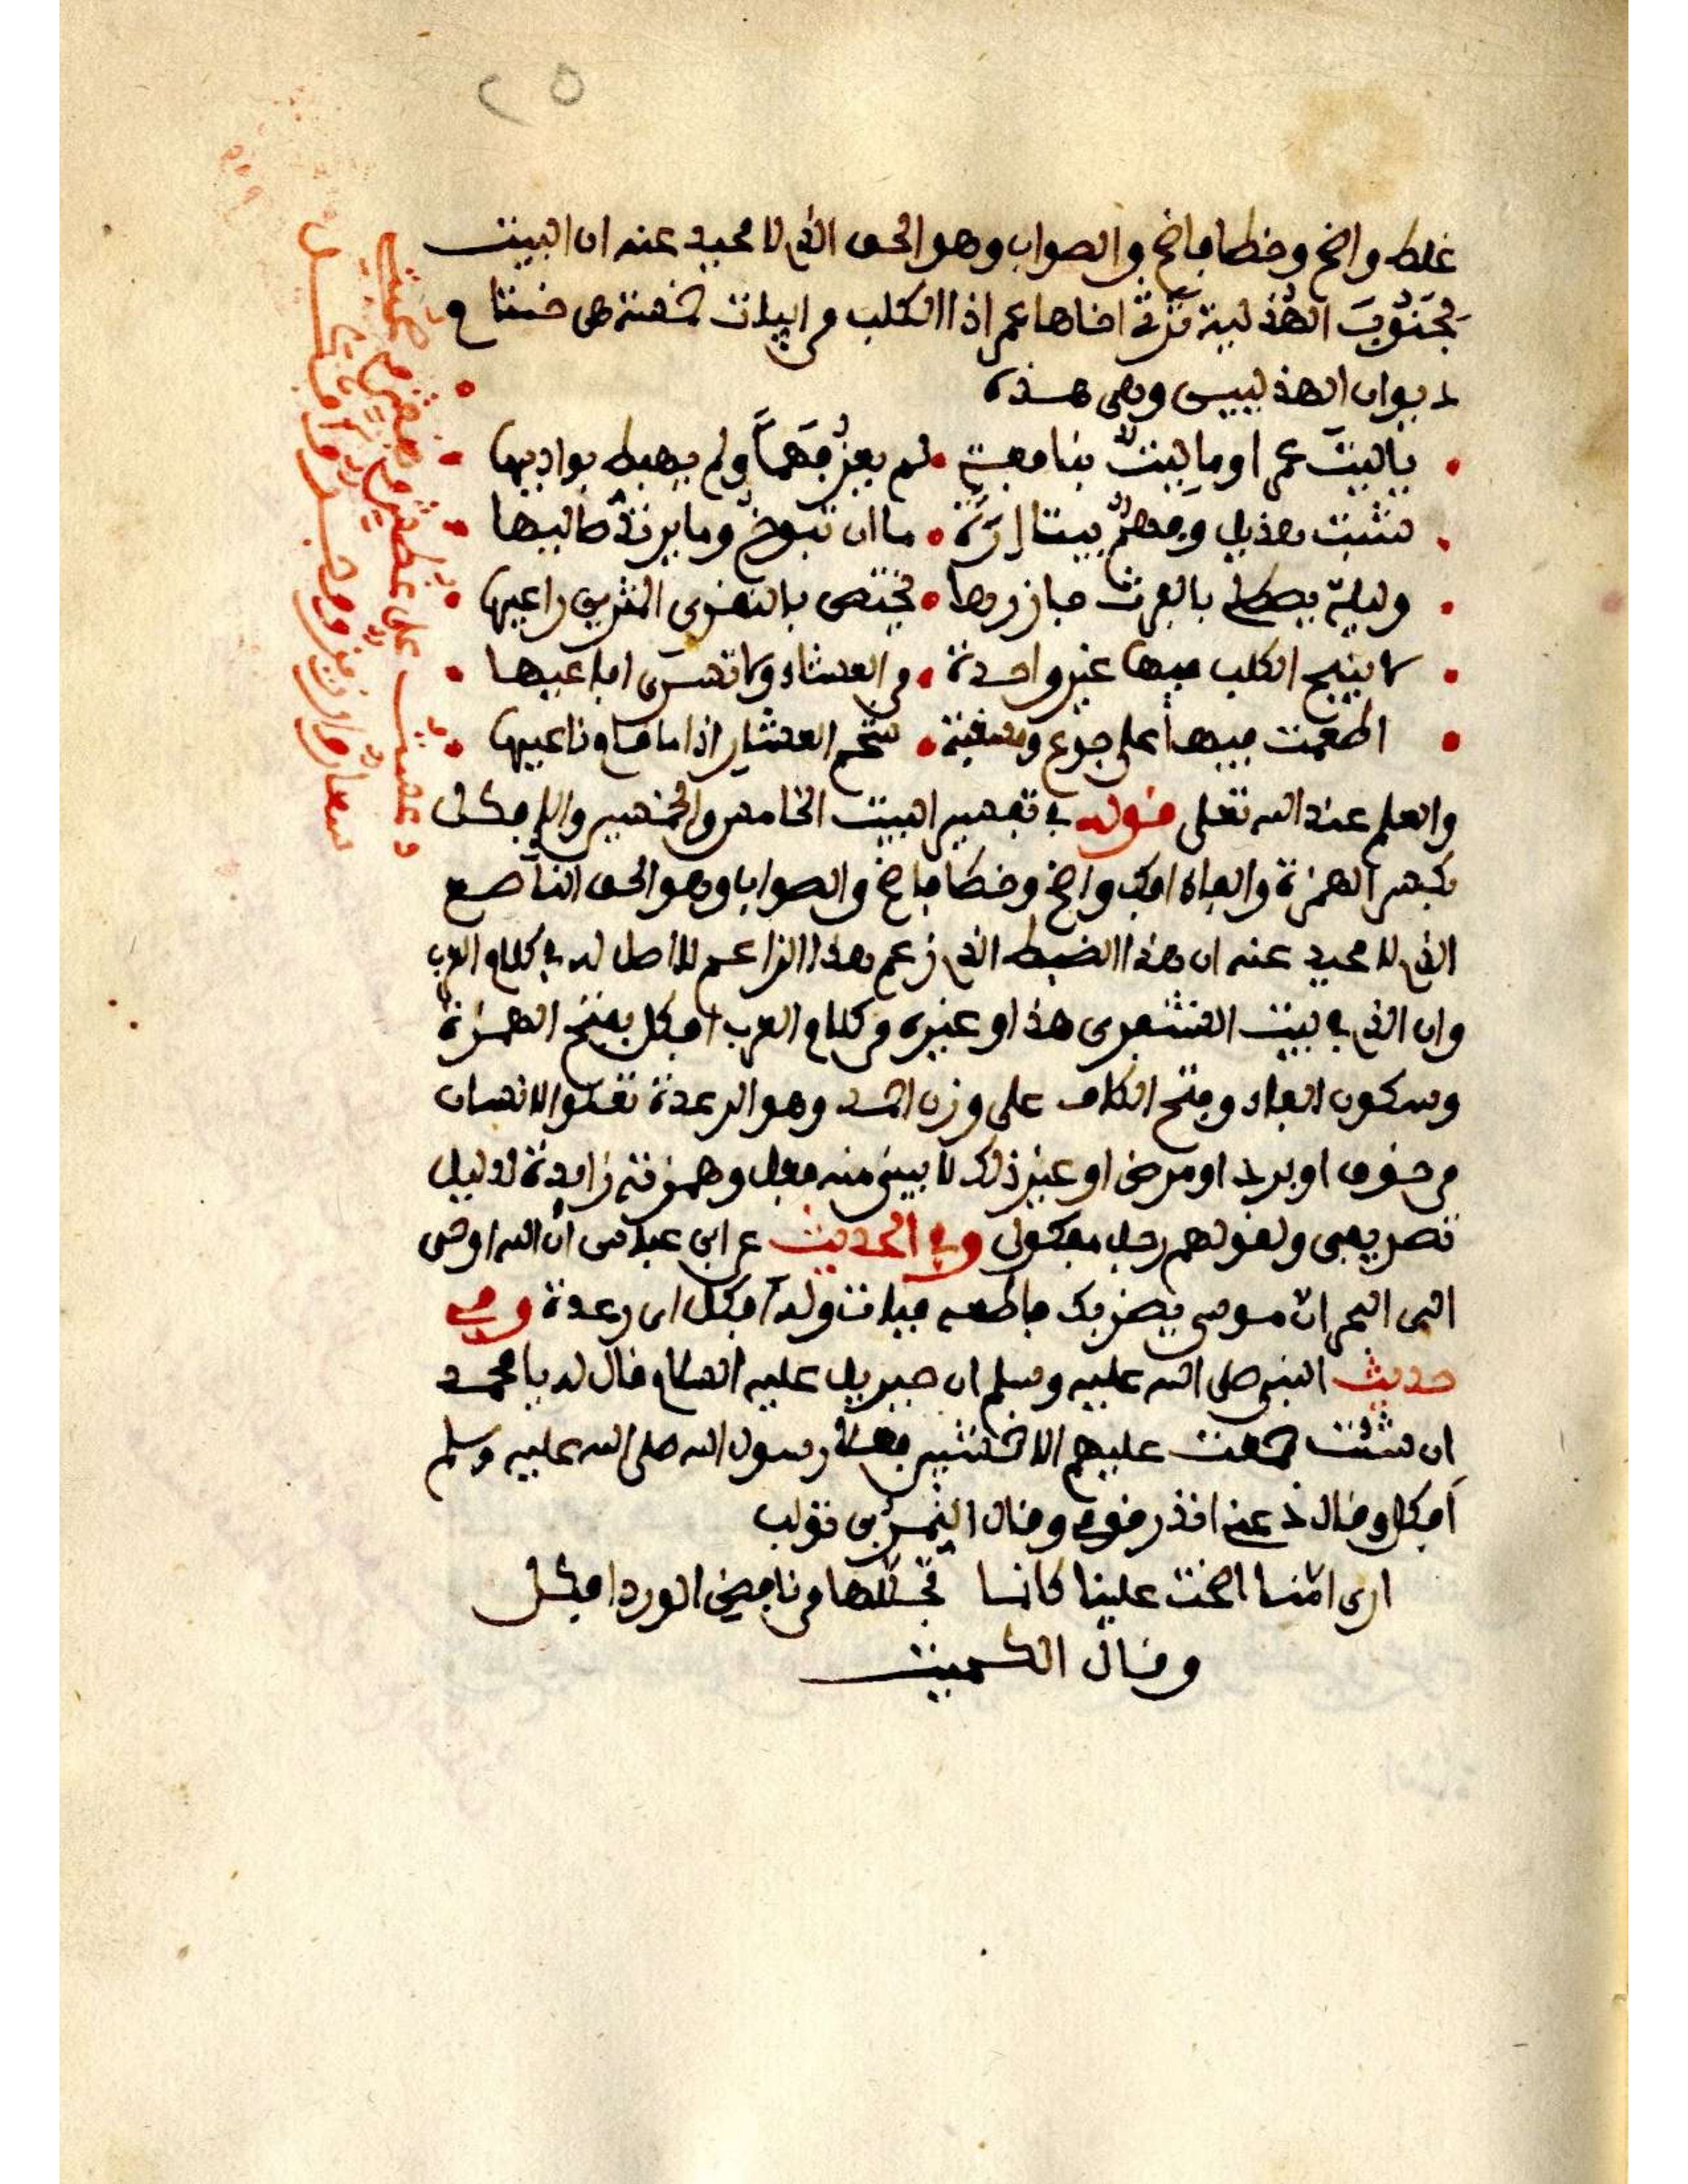 ٢٥
غلط واضح وخطا فاضح والصواب وهو الحق الذي لا محيد عنه ان البيت
لجَنُوبَ الهُذلية تَرْثي اخاها عمرا ذا الكلب من ابيات خمسة هي ختتام
ديوان الهذليين وهي هذه
ياليتَ عمرا وما ليتٌ بنافعةٍ • لم يغزُ فَهْماً ولم يهبط بواديها
شبت هذيل وفهمٌ بيننا إِرَةً • ما ان تبوخُ وما يرتدُّ صاليها
وليلة يصطلي بالفرث جازرها • يختص بالنقرى المثرين راعيها
لا ينبح الكلب فيها غير واحدة • من العشاء ولا تسرى افاعيها
اطعمت فيها على جوع ومسغبة • شحم العشار اذا ما قام ناعيها
والعلم عند الله تعلى قوله في تفسير البيت الخامس والخمسين والإفكل
بكسر الهمزة والفاء افك واضح وخطا فاضح والصواب وهو الحق الناصع
الذي لا محيد عنه ان هذا الضبط الذي زعم هذا الزاعم لا اصل له في كلام العرب
وان الذي في بيت الشنفرى هذا وغيره من كلام العرب افكل بفتح الهمزة
وسكون الفاء وفتح الكاف على وزن احمد وهو الرعدة تعلو الانسان
من خوف او برد او مرض او غير ذلك لا يبنى منه فعل وهمزته زايدة لدليل
تصريفى ولقولهم رجل مفكول وفي الحديث عن ابن عباس ان الله اوحى
الى البحر انّ موسى يضربك فاطعه فبات وله أفكل اى رعدة وفي
حديث النبي صلى الله عليه وسلم ان جبريل عليه السلام قال له يا محمد
ان شئت جمعت عليهم الاخشبين رسول الله صلى الله عليه وسلم
أفكل وقال دعني انذر قومي وقال النمر بن تولب
ارى امّنا اضحت علينا كانما تجللها من نافض الورد افكل
وقال الكميت
دعست على غطش وبغش وصحبتي
سعار وارزيز ووجر وافكل